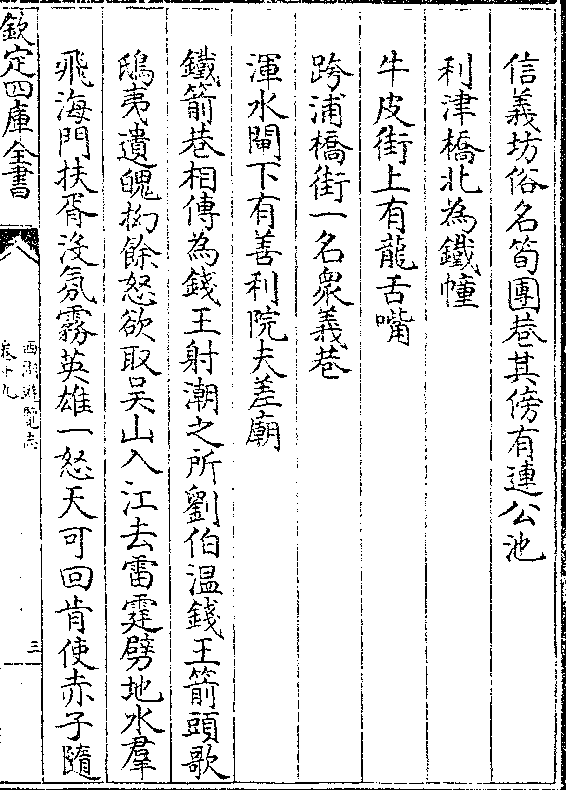 信義坊俗名筍團巷其傍有連公池
利津橋北為鐵幢
牛皮街上有龍舌嘴
跨浦橋街一名衆義巷
渾水閘下有善利院夫差廟
鐵箭巷相傳為錢王射潮之所劉伯温錢王箭頭歌
鴟夷遺魄拗餘怒欲取吴山入江去雷霆劈地水羣
飛海門扶胥没氛霧英雄一怒天可回肯使赤子隨
欽定四庫全書
西湖遊覽志
卷十九
三